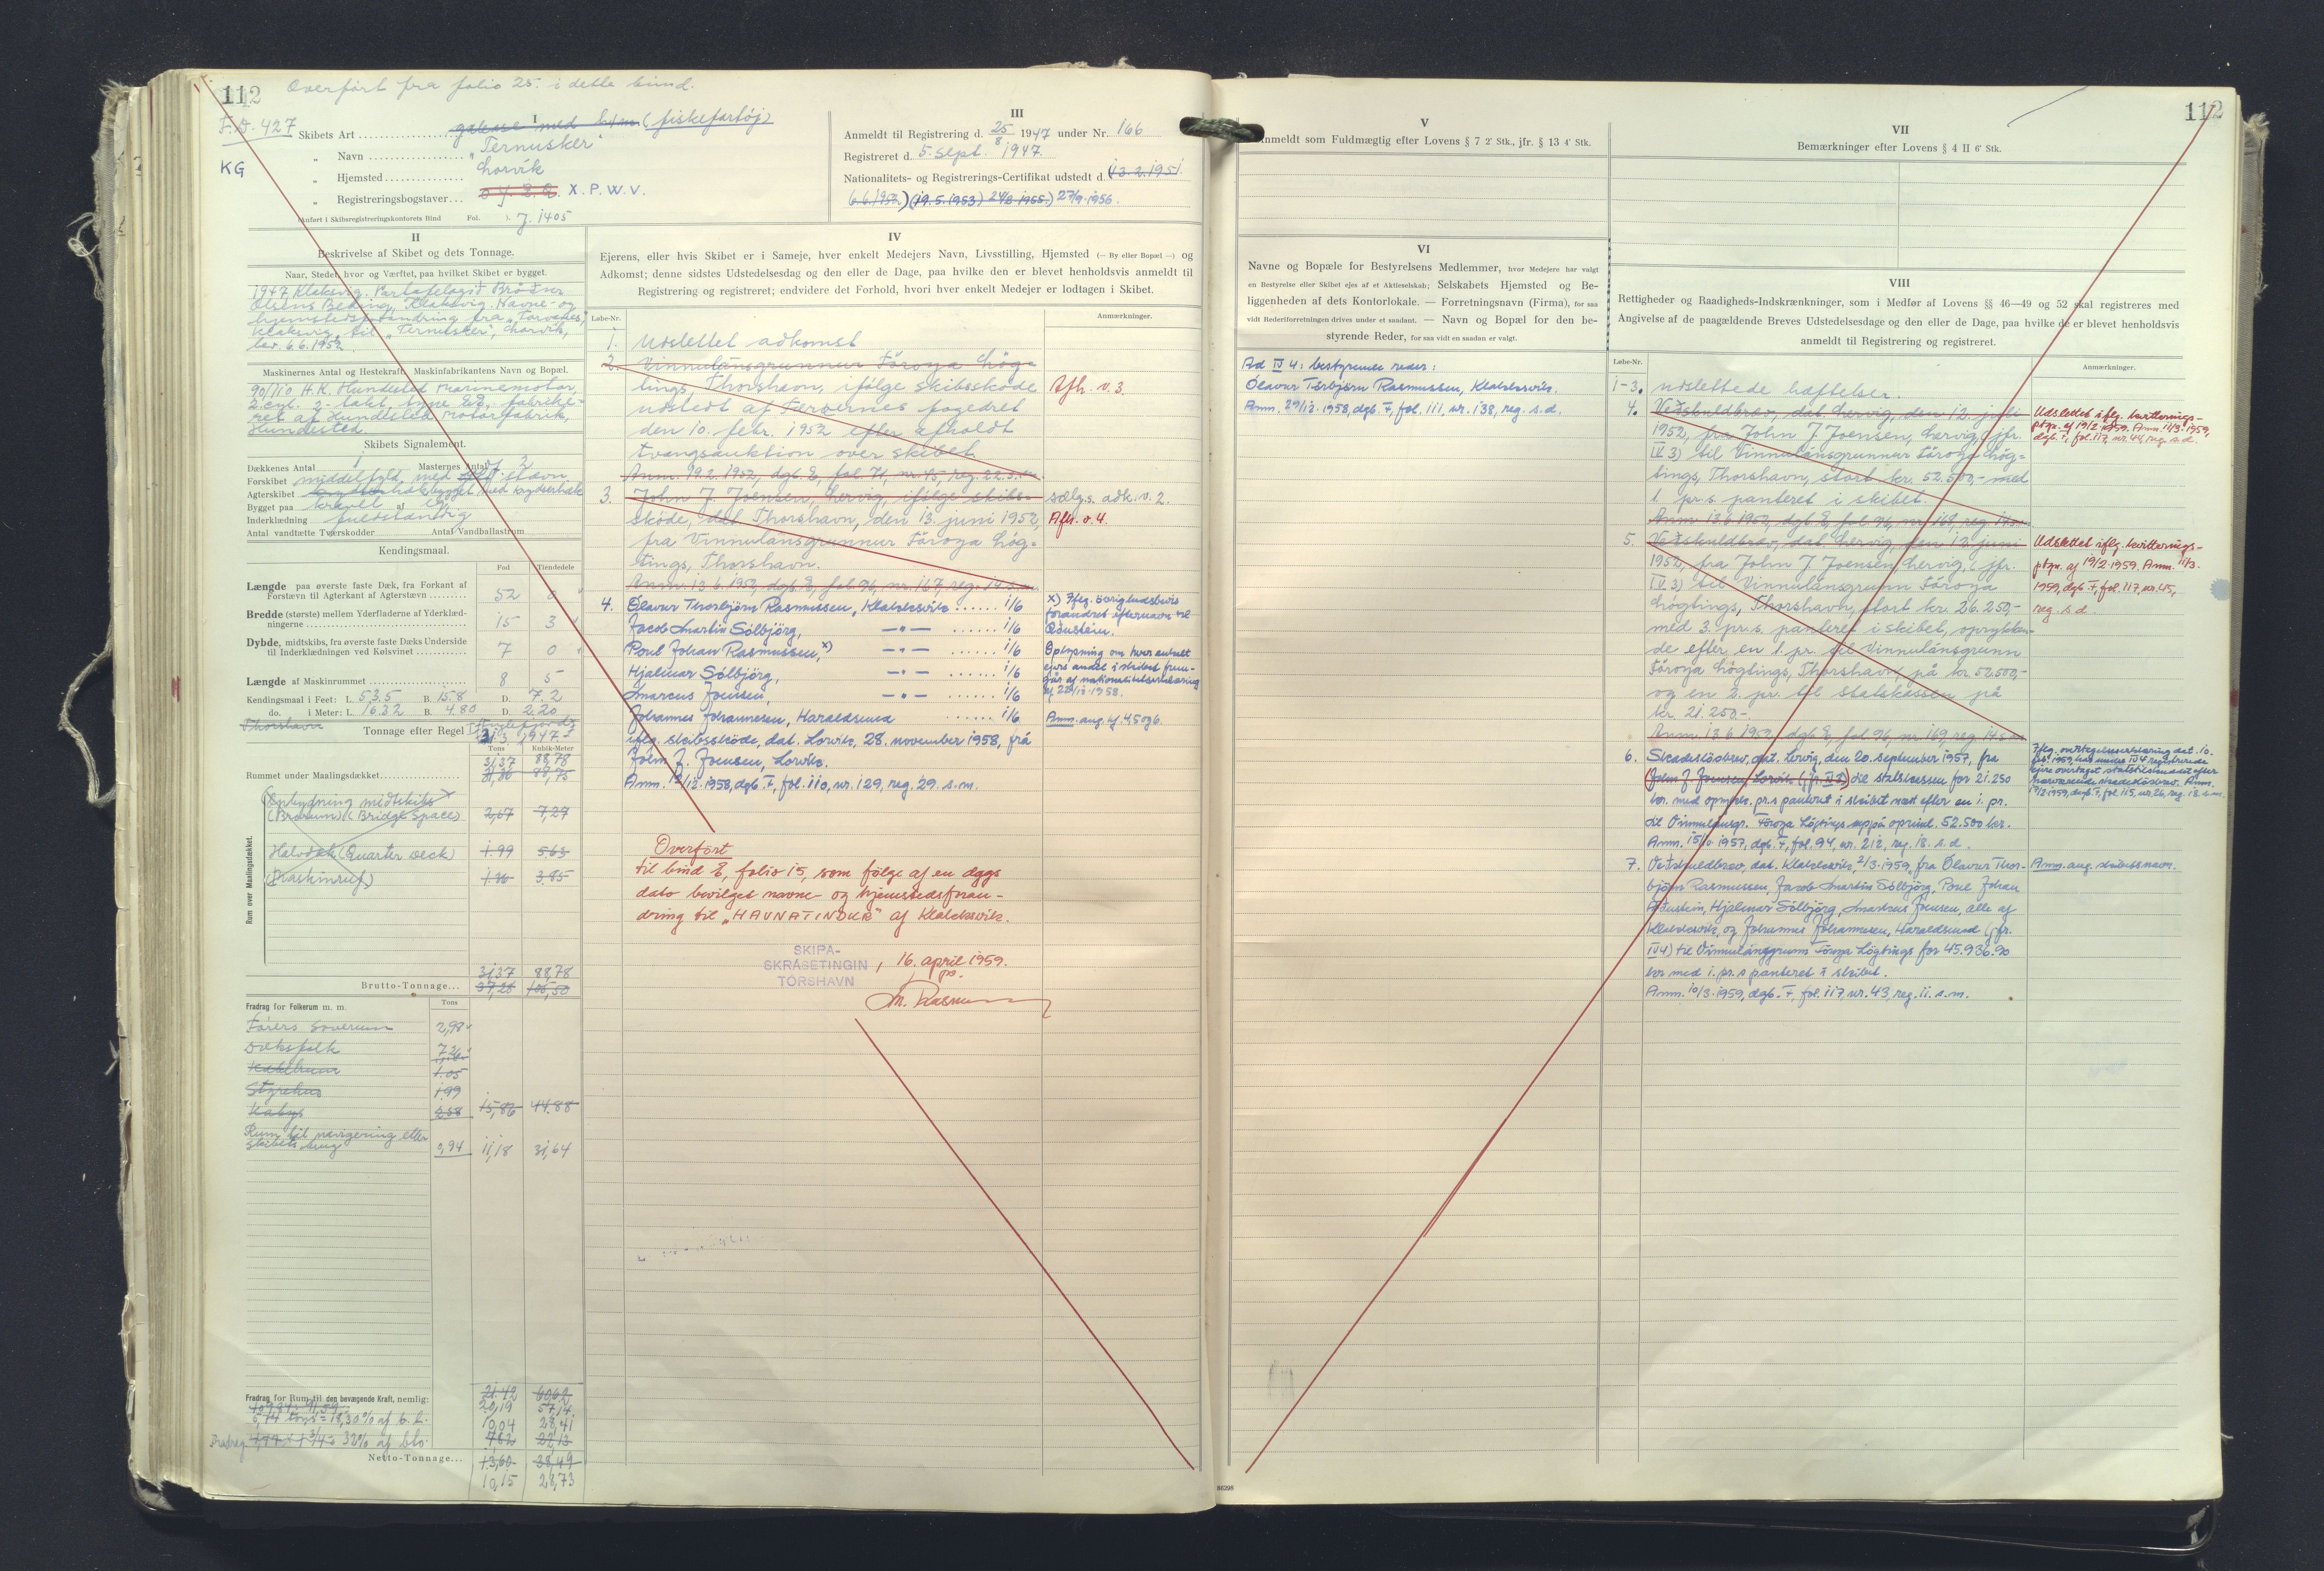 112 Overført fra folio 25. i dette bind.
F.D. 427
KG
I
Skibets Art galease med (fiskefartøj)
" Navn "Ternusker"
" Hjemsted Lorvík
" Registreringsbogstaver X.P.W.V.
(Anført i Skibsregistreringskontorets Bind Fol. ). J. 1405
III
Anmeldt til Registrering d. 25/8 1947 under Nr. 166
Registreret d. 5. sept. 1947.
Nationalitets- og Registrerings-Certifikat udstedt d. (13.2.1951.
(6.6.1952.) (19.5.1953.) 24/2 1955.) 27/9.1956.
II
Beskrivelse af Skibet og dets Tonnage.
Naar, Stedet, hvor og Værftet, paa hvilket Skibet er bygget.
1947, Klaksvig. Partafelagið Brøðrur
Olsens Bedding, Klaksvig. Navne- og
hjemstedsforandring fra "Torvanes,"
Klaksvig, til "Ternusker", Lorvík,
bev. 6.6.1952.
Maskinernes Antal og Hestekraft. Maskinfabrikantens Navn og Bopæl.
90/110 H.K. Hundested marinemotor,
2 cyl. 2-takt, type, fabrike-
ret af Hundested Motorfabrik,
Hundested.
Skibets Signalement.
Dækkenes Antal 1 Masternes Antal 2
Forskibet middelfyld, med stævn
Agterskibet bygget med krydserhæk
Bygget paa kravell af eg
Inderklædning fuldstændig
Antal vandtætte Tværskodder Antal Vandballastrum
Kendingsmaal.
Fod Tiendedele
Længde paa øverste faste Dæk, fra Forkant af
Forstævn til Agterkant af Agterstævn 52 0
Bredde (største) mellem Yderfladerne af Yderklæd-
ningerne 15 3
Dybde, midtskibs, fra øverste faste Dæks Underside
til Inderklædningen ved Kølsvinet 7 0
Længde af Maskinrummet 8 5
Kendingsmaal i Feet: L. 53.5 B. 15.8 D. 7.2
do. i Meter: L. 16.32 B. 4.80 D. 2.20
Thorshavn
Tonnage efter Regel I 21/3 1947
Tons Kubik-Meter
31,37 88,78
Rummet under Maalingsdækket 31,36 88,75
Rum over Maalingsdækket.
Opbygning midtskibs
(Brorum) (Bridge Space) 2,67 7,27
Halvdæk (Quarter Deck) 1.99 5.63
(Maskinruf) 1.36 3.85
31,37 88,78
Brutto-Tonnage 37,28 105,50
Fradrag for Folkerum m. m.
Tons
Førers Soverum 2,98
Dæksfolk 7,26
1.05
Styrehus 1.99
Kabys 2.58 15,86 44.88
Rum til navigering eller
skibets brug 0,94 11,18 31,64
Fradrag for Rum til den bevægende Kraft, nemlig:
21.42 60,62
20,19 57,14
10,04 28,41
Fradrag 32% af bto. 7.82 22,13
Netto-Tonnage 13,60 38,49
10,15 28,73
IV
Ejerens, eller hvis Skibet er i Sameje, hver enkelt Medejers Navn, Livsstilling, Hjemsted (— By eller Bopæl —) og
Adkomst; denne sidstes Udstedelsesdag og den eller de Dage, paa hvilke den er blevet henholdsvis anmeldt til
Registrering og registreret; endvidere det Forhold, hvori hver enkelt Medejer er lodtagen i Skibet.
Løbe-Nr. Anmærkninger.
1. Udslettet adkomst
2. Vinnulánsgrunnur Føroya Løg-
tings, Thorshavn, ifølge skibsskøde Afh. v. 3.
udstedt af Færøernes fogedret
den 10. febr. 1952 efter afholdt
tvangsauktion over skibet.
Anm. 19.2.1952, dgb. E, fol. 71, nr. 45, reg. 22.s.m.
3. John J. Joensen, Lervig, ifølge skibs- sælgs. adk. v. 2.
skøde, dat. Thorshavn, den 13. juni 1952, Afh. v. 4.
fra Vinnulánsgrunnur Føroya Løg-
tings, Thorshavn.
Anm. 13.6.1952, dgb. E, fol. 96, nr. 167, reg. 14.s.m.
4. Ólavur Thorbjørn Rasmussen, Klakksvík ...... 1/6
Jacob Martin Sólbjørg, —"— ...... 1/6
Poul Johan Rasmussen, x) —"— ...... 1/6
Hjalmar Sólbjørg, —"— ...... 1/6
Marcus Joensen, —"— ...... 1/6
Johannes Johannesen, Haraldsund ...... 1/6
iflg. skibsskøde, dat. Lorvík, 28. november 1958, frá
John J. Joensen, Lorvík.
Anm. 12/12.1958, dgb. F, fol. 110, nr. 129, reg. 29. s.m.
x) Iflg. øvrighedsbevis
forandret efternavn til
Øðustein.
Oplysning om hver enkelt
ejers andel i skibet frem-
går af nationalitetserklæring
af 22/12.1958.
Anm. ang. hf. 4, 5 og 6.
Overført
til bind 8, folio 15, som følge af en dags
dato bevilget navne- og hjemstedsforan-
dring til "HAVNATINDUR" af Klakksvík.
SKIPA-
SKRÁSETINGIN
TÓRSHAVN
, 16. april 1959.
M. Rasmu
112
V
Anmeldt som Fuldmægtig efter Lovens § 7 2' Stk., jfr. § 13 4' Stk.
VI
Navne og Bopæle for Bestyrelsens Medlemmer, hvor Medejere har valgt
en Bestyrelse eller Skibet ejes af et Aktieselskab; Selskabets Hjemsted og Be-
liggenheden af dets Kontorlokale. — Forretningsnavn (Firma), for saa
vidt Rederiforretningen drives under et saadant. — Navn og Bopæl for den be-
styrende Reder, for saa vidt en saadan er valgt.
Ad IV 4: bestyrende reder:
Ólavur Torbjørn Rasmussen, Klakksvík.
Anm. 29/12.1958, dgb. F, fol. 111, nr. 138, reg. s.d.
VII
Bemærkninger efter Lovens § 4 II 6' Stk.
VIII
Rettigheder og Raadigheds-Indskrænkninger, som i Medfør af Lovens §§ 46—49 og 52 skal registreres med
Angivelse af de paagældende Breves Udstedelsesdage og den eller de Dage, paa hvilke de er blevet henholdsvis
anmeldt til Registrering og registreret.
Løbe-Nr. Anmærkninger.
1-3. udslettede hæftelser.
4. Veðskuldbrøv, dat. Lervig, den 12. juli
1952, fra John J. Joensen, Lervig, (jfr.
IV 3) til Vinnulánsgrunnur Føroya Løg-
tings, Thorshavn, stort kr. 52.500,- med
1. pr.s. panteret i skibet.
Anm. 13.6.1952, dgb. E, fol. 96, nr. 168, reg. 14.s.m.
Udslettet iflg. kvitterings-
ptgn. af 19/2 1959. Anm. 11/3.1959,
dgb. F, fol. 117, nr. 44, reg. s.d.
5. Veðskuldbrøv, dat. Lervig, den 13. juni
1952, fra John J. Joensen, Lervig, (jfr.
IV 3) til Vinnulánsgrunn Føroya
Løgtings, Thorshavn, stort kr. 26.250,-
med 3. pr.s. panteret i skibet, oprykken-
de efter en 1. pr. til Vinnulánsgrunn
Føroya Løgtings, Thorshavn, på kr. 52.500,-
og en 2. pr. til Statskassen på
kr. 21.250.-
Anm. 13.6.1952, dgb. E, fol. 96, nr. 169, reg. 14.s.m.
Udslettet iflg. kvitterings-
ptgn. af 19/2 1959. Anm. 11/3.
1959, dgb. F, fol. 117, nr. 45,
reg. s.d.
6. Skadesløsbrev, dat. Lervig, den 20. september 1957, fra
(John J. Joensen, Lorvík (jfr. IV 3) til statskassen for 21.250
kr. med oprykk. pr.s panteret i skibet næst efter en 1. pr.
til Vinnulánsgr. Føroya Løgtings uppá oprind. 52.500 kr.
Anm. 15/10.1957, dgb. F, fol. 94, nr. 212, reg. 18. s.d.
Iflg. overtagelseserklæring dat. 10.
feb. 1959, har under IV 4 registrerede
ejere overtaget statstilsk. efter
nærværende skadesløsbrev. Anm.
17/2.1959, dgb. F, fol. 115, nr. 26, reg. 18. s.m.
7. Veðskuldbrøv, dat. Klakksvík, 2/3.1959, fra Ólavur Thor-
bjørn Rasmussen, Jacob Martin Sólbjørg, Poul Johan
Øðustein, Hjalmar Sólbjørg, Marcus Joensen, alle af
Klakksvík, og Johannes Johannesen, Haraldsund (jfr.
IV 4) til Vinnulánsgrunn Føroya Løgtings for 45.936.90
kr. med 1. pr.s panteret i skibet.
Anm. 10/3.1959, dgb. F, fol. 117, nr. 43, reg. 11. s.m.
Anm. ang. skibets navn.
86298